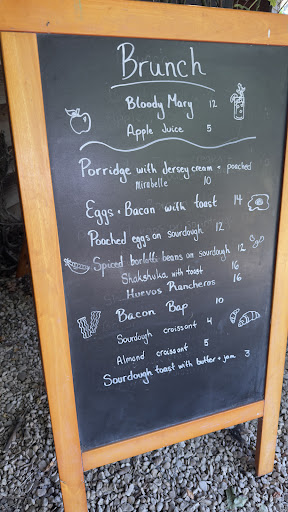 Brunch
Bloody Mary 12
Apple Juice 5
Porridge with Jersey cream + poached
Mirabelle 10
Eggs + Bacon with toast 14
Poached eggs on sourdough 12
Spiced borlotti beans on sourdough 12
Shakshuka with toast 16
Huevos Rancheros 16
Bacon Bap 10
Sourdough croissant 4
Almond croissant 5
Sourdough toast with butter + jam 3